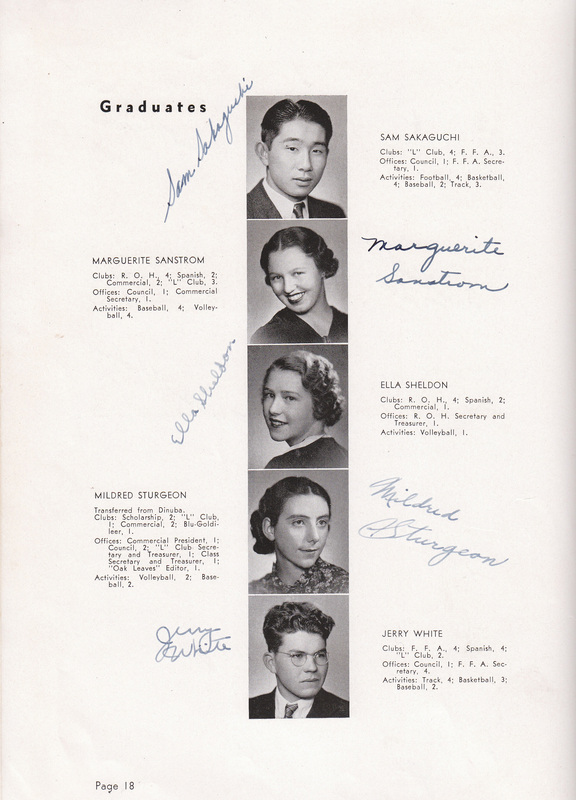 Graduates
Sam Sakaguchi
SAM SAKAGUCHI
Clubs: "L" Club, 4; F. F. A., 3.
Offices: Council, 1; F. F. A. Secre-
tary, 1.
Activities: Football, 4; Basketball,
4; Baseball, 2; Track, 3.
MARGUERITE SANSTROM
Clubs: R. O. H., 4; Spanish, 2;
Commercial, 2; "L" Club, 3.
Offices: Council, 1; Commercial
Secretary, 1.
Activities: Baseball, 4; Volley-
ball, 4.
Marguerite
Sanstrom
Ella Sheldon
ELLA SHELDON
Clubs: R. O. H., 4; Spanish, 2;
Commercial, 1.
Offices: R. O. H. Secretary and
Treasurer, 1.
Activities: Volleyball, 1.
MILDRED STURGEON
Transferred from Dinuba.
Clubs: Scholarship, 2; "L" Club,
1; Commercial, 2; Blu-Goldi-
leer, 1.
Offices: Commercial President, 1;
Council, 2; "L" Club Secre-
tary and Treasurer, 1; Class
Secretary and Treasurer, 1;
"Oak Leaves" Editor, 1.
Activities: Volleyball, 2; Base-
ball, 2.
Mildred
Sturgeon
Jerry
White
JERRY WHITE
Clubs: F. F. A., 4; Spanish, 4;
"L" Club, 2.
Offices: Council, 1; F. F. A. Sec-
retary, 4.
Activities: Track, 4; Basketball, 3;
Baseball, 2.
Page 18